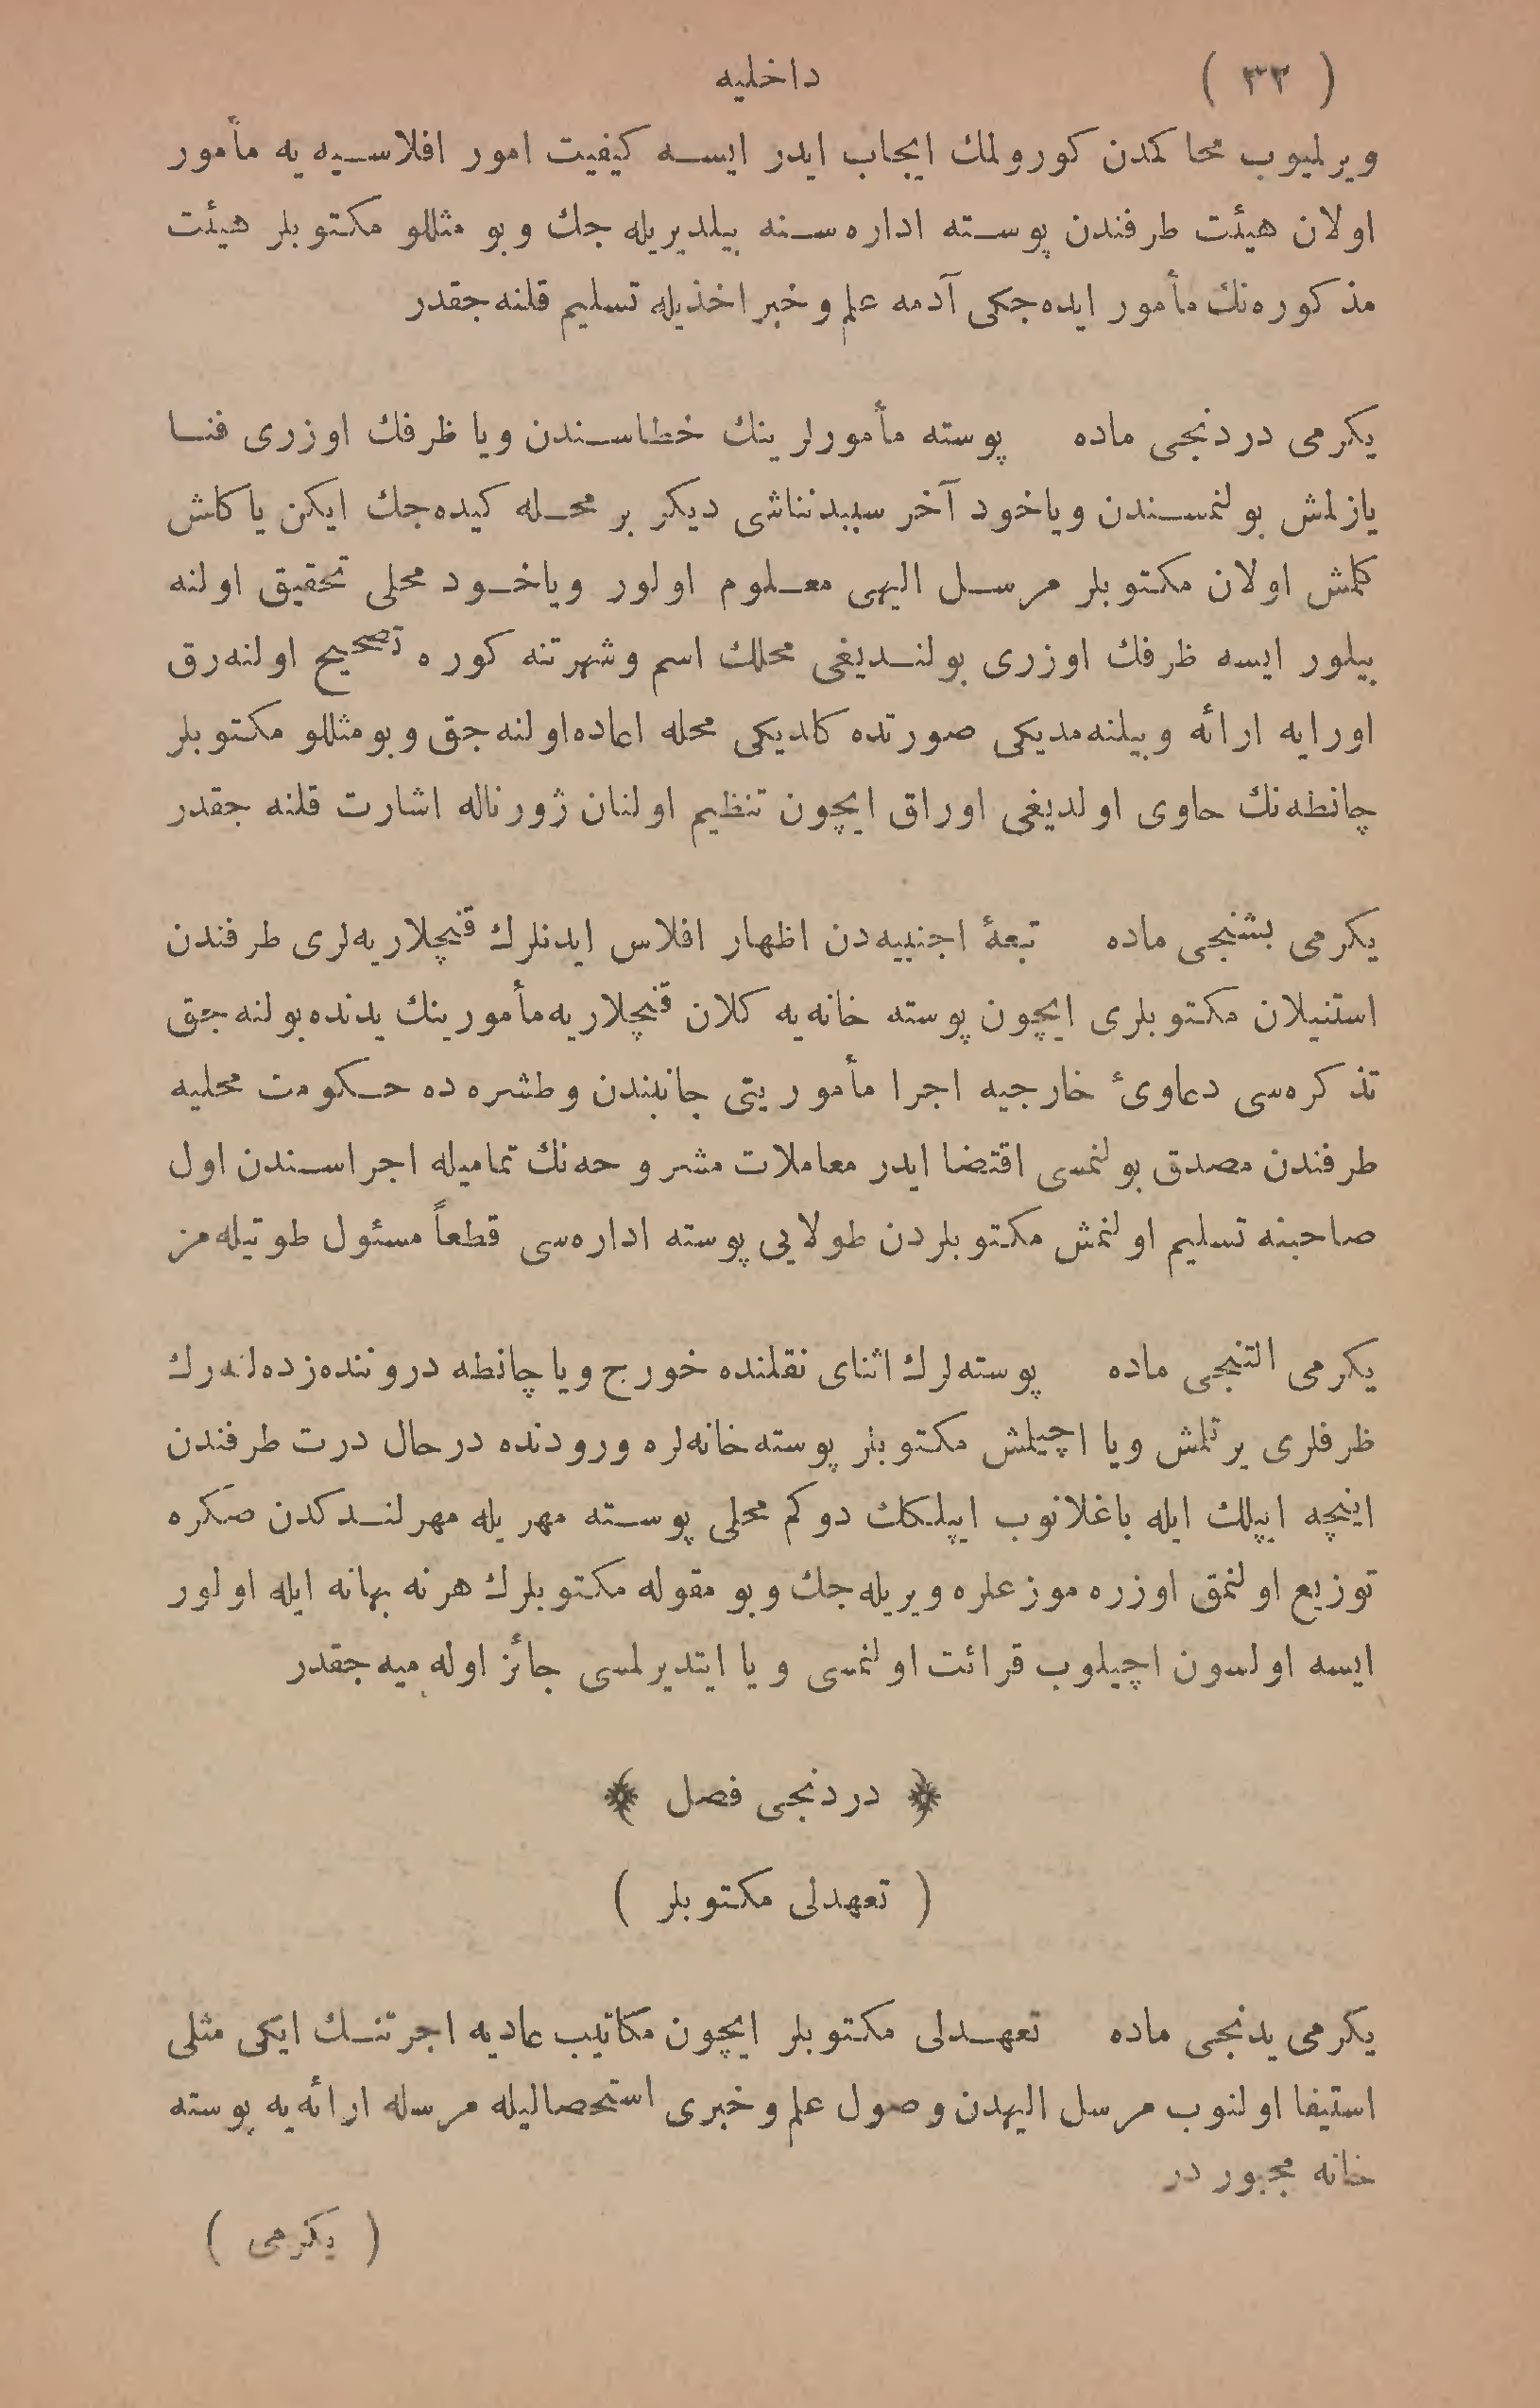 ( ٣٢ ) داخلیه
ویرلمیوب محاکمدن کورولمك ایجاب ایدر ایسه کیفیت امور افلاسیه یه مأمور
اولان هیئت طرفندن پوسته اداره‌سنه بیلدیریله جك و بو مثللو مکتوبلر هیئت
مذکوره‌نك مأمور ایده‌جکی آدمه علم و خبر اخذیله تسلیم قلنه جقدر
یکرمی دردنجی ماده پوسته مأمورلرینك خطاسندن ویا ظرفك اوزری فنا
یازلمش بولنمسندن ویاخود آخر سببدنناشی دیکر بر محله کیده‌جك ایکن یاکلش
کلمش اولان مکتوبلر مرسل الیهی معلوم اولور ویاخود محلی تحقیق اولنه
بیلور ایسه ظرفك اوزری بولندیغی محلك اسم و شهرتنه کوره تصحیح اولنه‌رق
اورایه ارائه و بیلنه‌مدیکی صورتده کلدیکی محله اعاده اولنه جق و بو مثللو مکتوبلر
چانطه‌نك حاوی اولدیغی اوراق ایچون تنظیم اولنان ژورناله اشارت قلنه جقدر
یکرمی بشنجی ماده تبعهٔ اجنبیه‌دن اظهار افلاس ایدنلرك قنچلاریه‌لری طرفندن
استنیلان مکتوبلری ایچون پوسته خانه‌یه کلان قنچلاریه مأمورینك یدنده بولنه جق
تذکره‌سی دعاویٔ خارجیه اجرا مأموریتی جانبندن و طشره ده حکومت محلیه
طرفندن مصدق بولنمسی اقتضا ایدر معاملات مشروحه‌نك تمامیله اجراسندن اول
صاحبنه تسلیم اولنمش مکتوبلردن طولایی پوسته اداره‌سی قطعاً مسئول طوتیله‌مز
یکرمی التنجی ماده پوسته‌لرك اثنای نقلنده خورج ویا چانطه دروننده زده‌لنه‌رك
ظرفلری یرتلمش ویا اچیلمش مکتوبلر پوسته خانه‌لره ورودنده درحال درت طرفندن
اینچه ایپلك ایله باغلانوب ایپلکك دوکم محلی پوسته مهریله مهرلندکدن صکره
توزیع اولنمق اوزره موزعلره ویریله جك و بو مقوله مکتوبلرك هر نه بهانه ایله اولور
ایسه اولسون اچیلوب قرائت اولنمسی و یا ایتدیرلمسی جائز اوله میه جقدر
﴿ دردنجی فصل ﴾
( تعهدلی مکتوبلر )
یکرمی یدنجی ماده تعهدلی مکتوبلر ایچون مکاتیب عادیه اجرتنك ایکی مثلی
استیفا اولنوب مرسل الیهدن وصول علم و خبری استحصالیله مرسله ارائه‌یه پوسته
خانه مجبور در
( یکرمی )